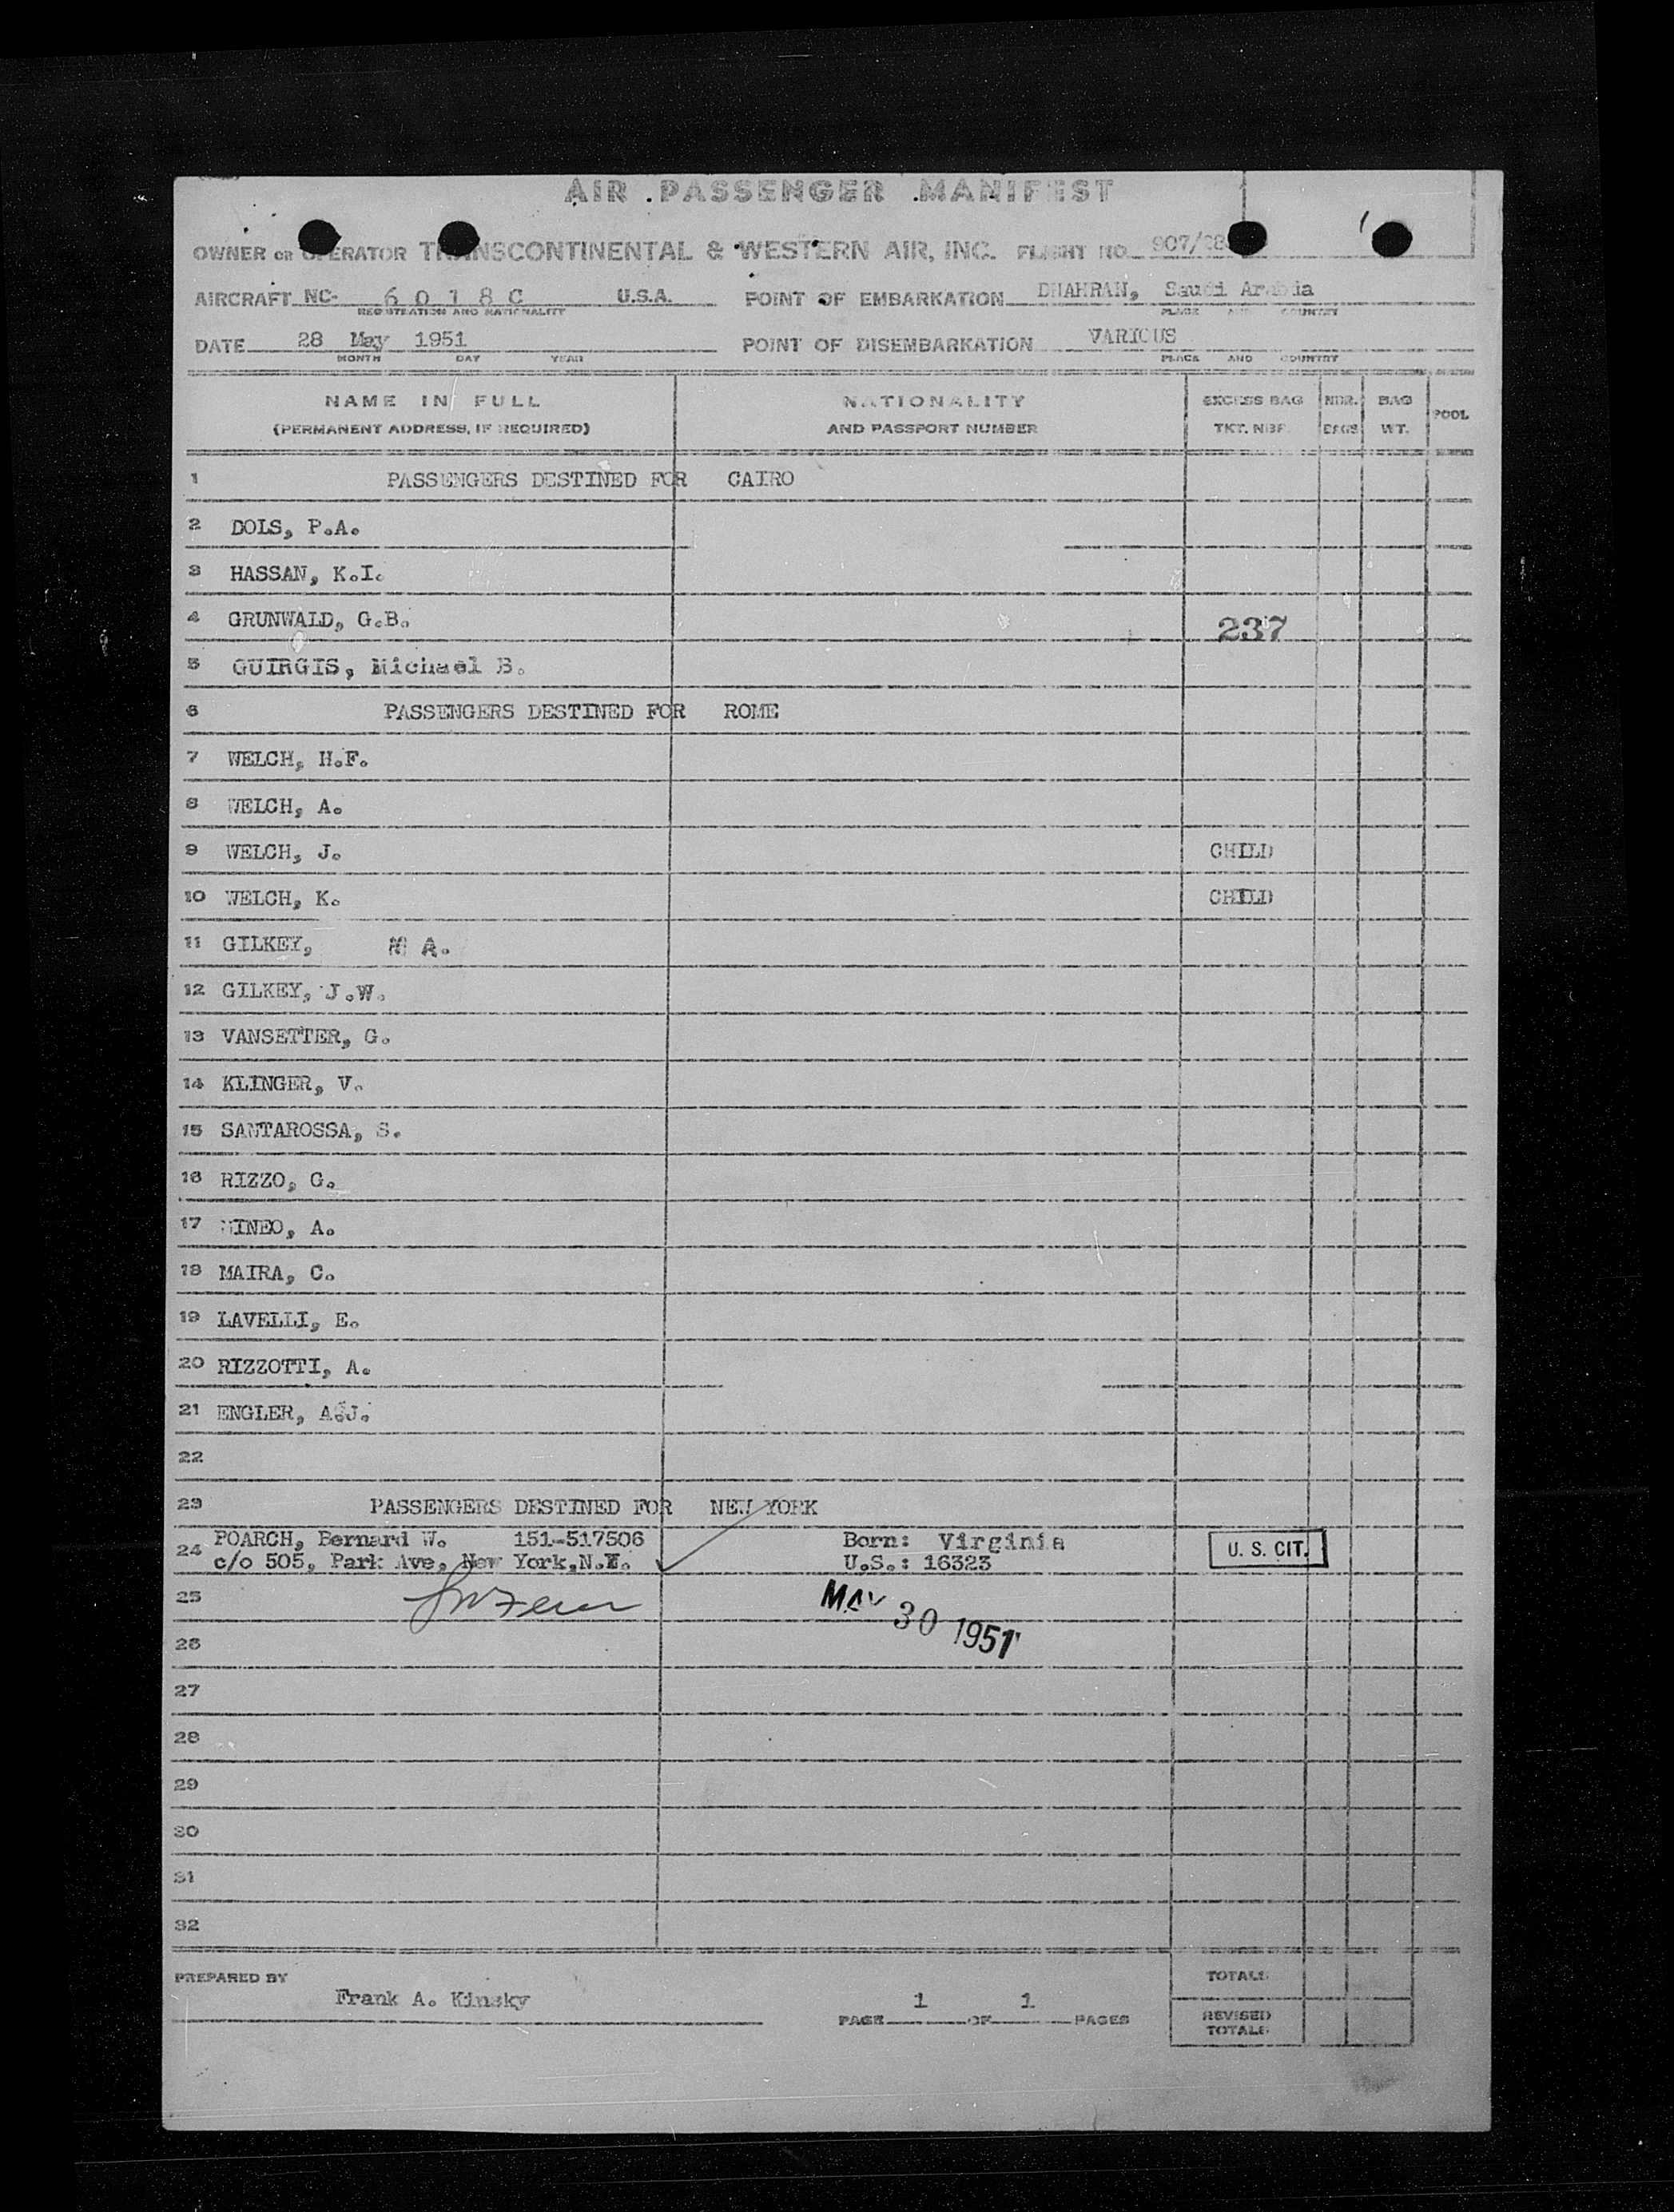 AIR PASSENGER MANIFEST
OWNER OR OPERATOR TRANSCONTINENTAL & WESTERN AIR, INC. FLIGHT NO. 907/28
AIRCRAFT NC- 6 0 1 8 C U.S.A. POINT OF EMBARKATION DHAHRAN, Saudi Arabia
REGISTRATION AND NATIONALITY PLACE AND COUNTRY
DATE 28 May 1951 POINT OF DISEMBARKATION VARIOUS
MONTH DAY YEAR PLACE AND COUNTRY
NAME IN FULL NATIONALITY EXCESS BAG NBR. BAG POOL
(PERMANENT ADDRESS, IF REQUIRED) AND PASSPORT NUMBER TKT. NBR. BAGS WT.
1 PASSENGERS DESTINED FOR CAIRO
2 DOLS, P.A.
3 HASSAN, K.I.
4 GRUNWALD, G.B. 237
5 GUIRGIS, Michael B.
6 PASSENGERS DESTINED FOR ROME
7 WELCH, H.F.
8 WELCH, A.
9 WELCH, J. CHILD
10 WELCH, K. CHILD
11 GILKEY, M A.
12 GILKEY, J.W.
13 VANSETTER, G.
14 KLINGER, V.
15 SANTAROSSA, S.
16 RIZZO, G.
17 A.
18 MAIRA, C.
19 LAVELLI, E.
20 RIZZOTTI, A.
21 ENGLER, A.J.
22
23 PASSENGERS DESTINED FOR NEW YORK
24 POARCH, Bernard W. 151-517506 Born: Virginia U. S. CIT.
c/o 505, Park Ave, New York,N.Y. U.S.: 16323
25 MAY 30 1951
26
27
28
29
30
31
32
PREPARED BY TOTALS
Frank A. Kinsky PAGE 1 OF 1 PAGES REVISED
TOTALS